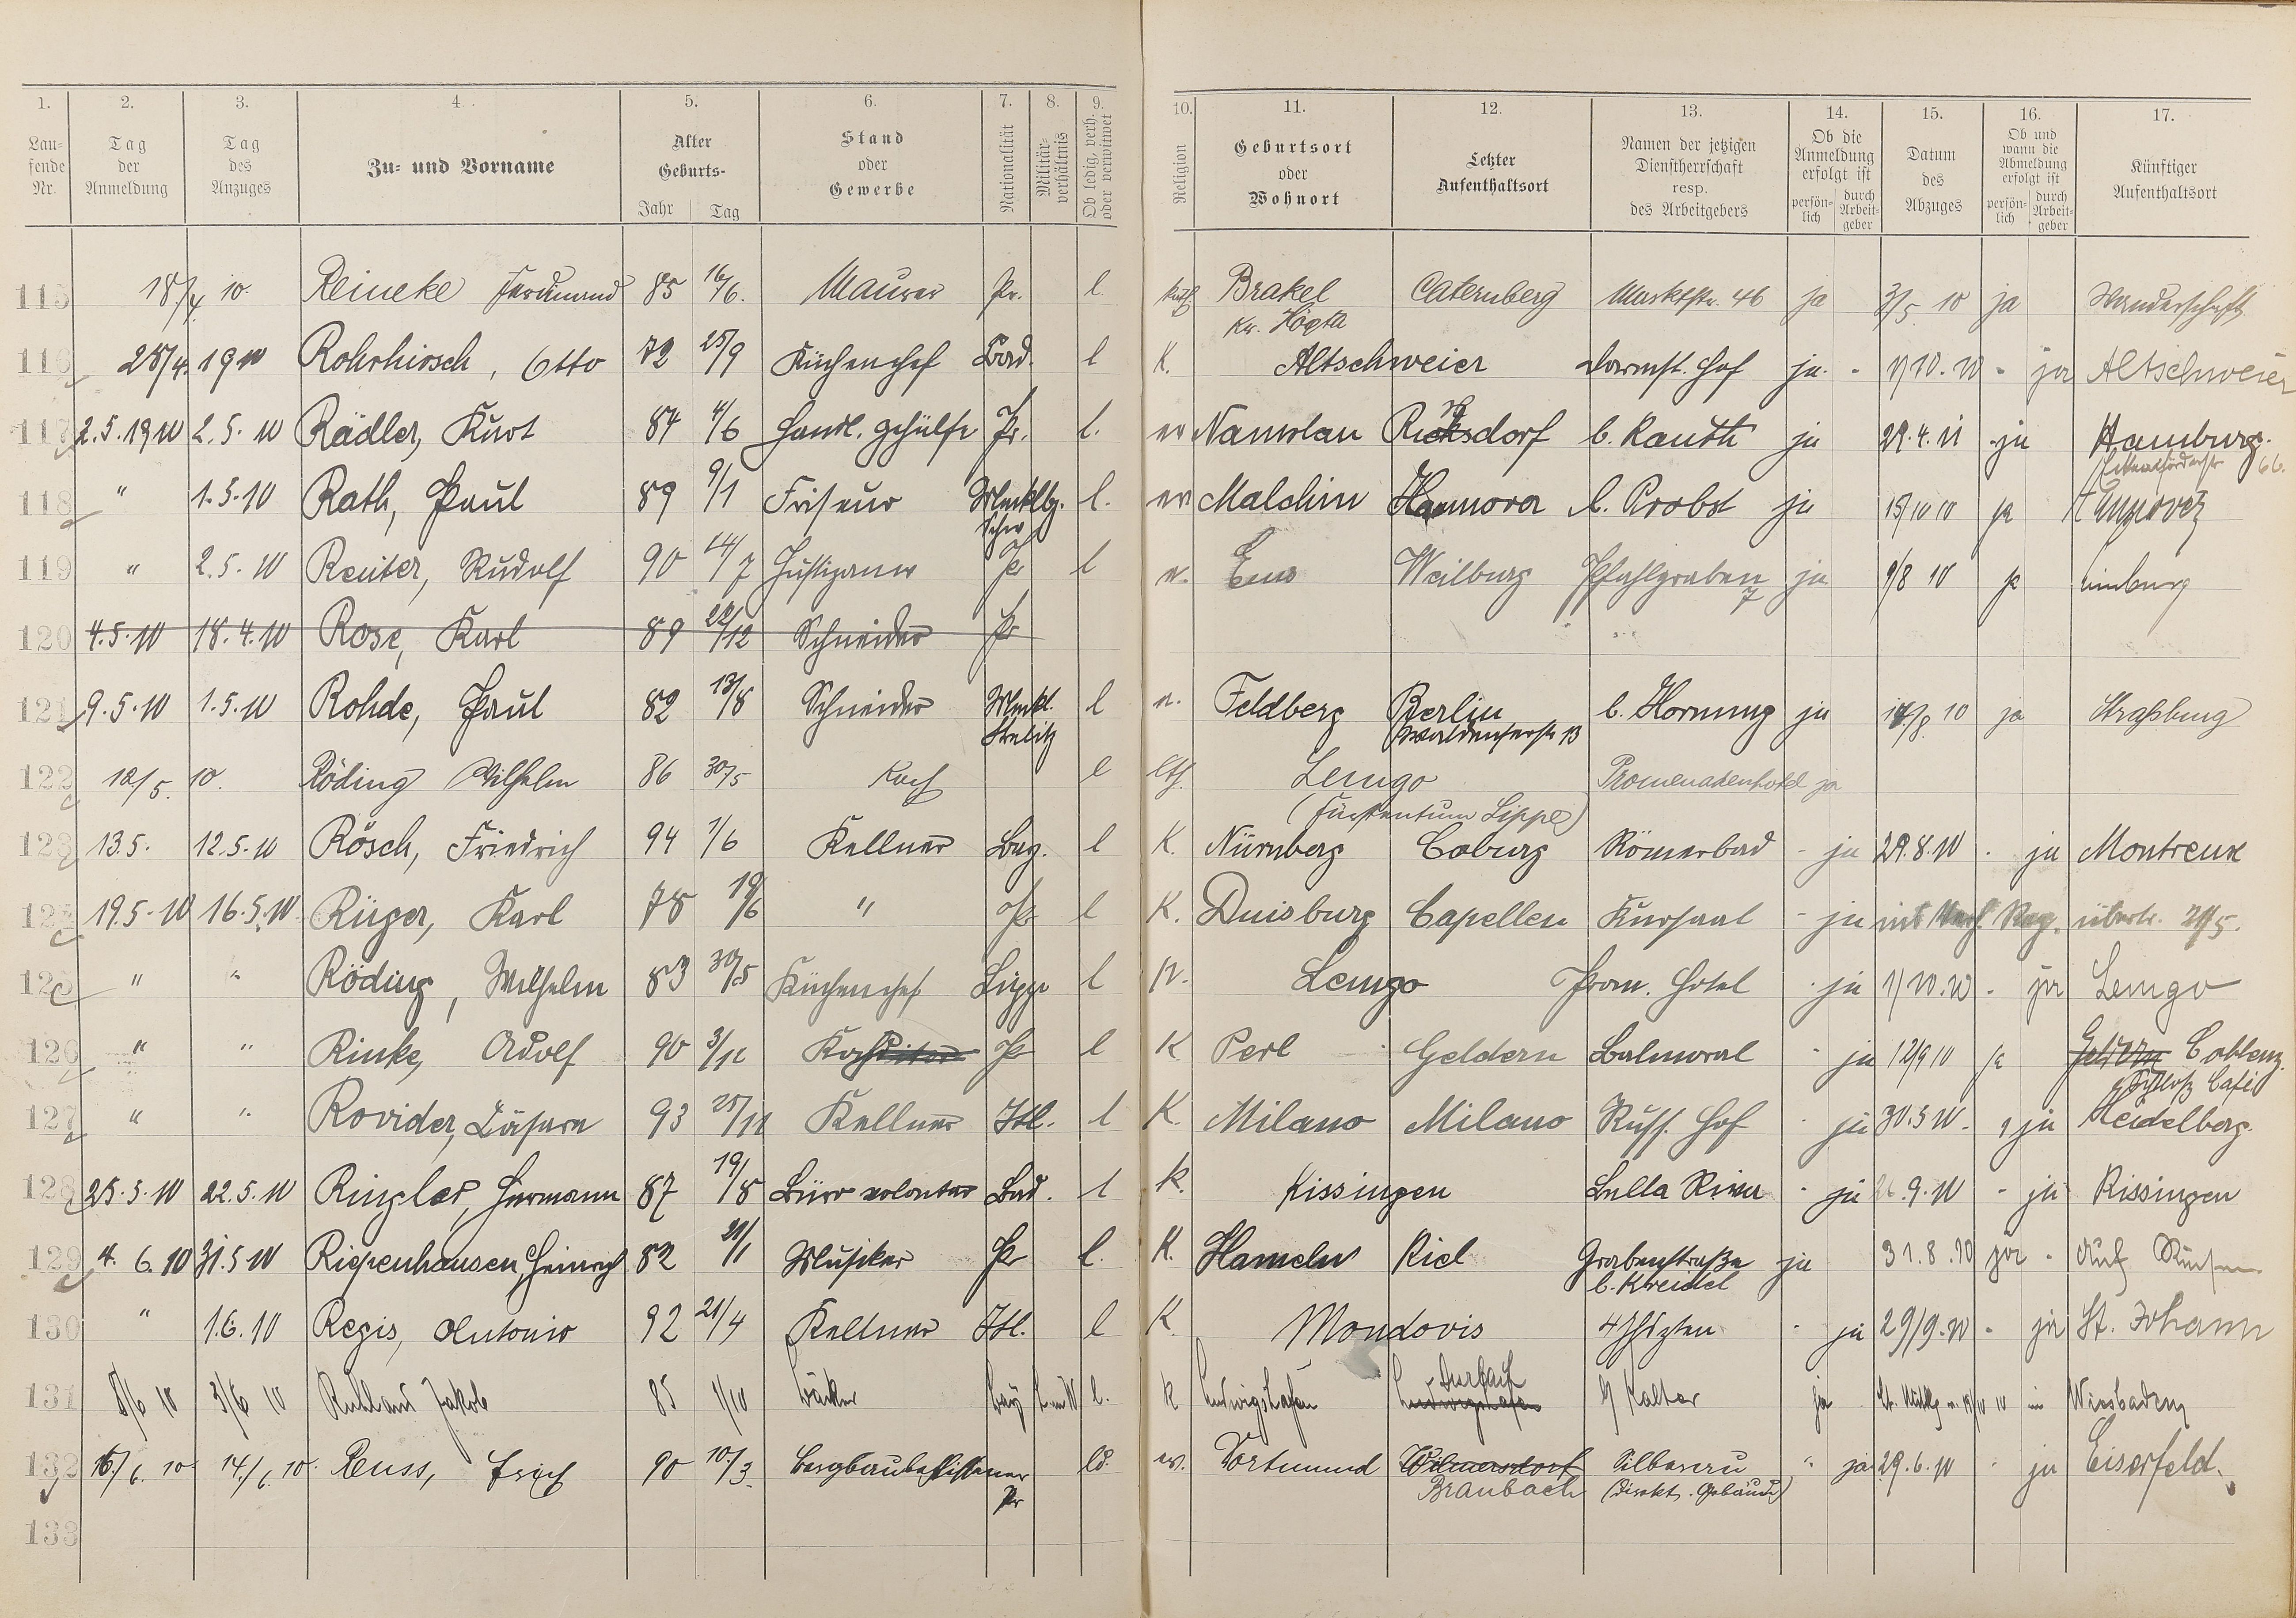 1. 2. 3. 4. 5. 6. 7. 8. 9. 10. 11. 12. 13. 14. 15. 16. 17.
Lau-fende Nr. Tag der Anmeldung Tag des Anzuges Zu- und Vorname Alter Geburts- Jahr Tag Stand oder Gewerbe Nationalität Militär-verhältnis Ob ledig, verh. oder verwitwet Religion Geburtsort oder Wohnort Letzter Aufenthaltsort Namen der jetzigen Dienstherrschaft resp. des Arbeitgebers Ob die Anmeldung erfolgt ist persön-lich durch Arbeit-geber Datum des Abzuges Ob und wann die Abmeldung erfolgt ist persön-lich durch Arbeit-geber Künftiger Aufenthaltsort
115 18/4. 10. Reineke Ferdinand 85 16/6. Maurer Pr. l. kath Brakel Caternberg Marktstr. 46 ja 3/5. 10 ja Wanderschaft
Kr. Höxta
116 28/4. 1910 Rohrhirsch, Otto 72 25/9 Küchenchef Bad. l K. Altschweier Darmst. Hof ja - 1/10. 10 - ja Altschweier
117 2.5.1910 2.5.10 Rädler, Kurt 84 4/6 Handl. gehülfe Pr. l. ev Namslau Rixdorf b. Rauth ja 29.4.11 ja Hamburg.
66.
118 " 1.5.10 Rath, Paul 89 9/1 Friseur Mecklbg. l. ev Malchin Hannover b. Probst ja 15/10 10 ja Hannover
Schw
119 " 2.5.10 Reuter, Rudolf 90 14/7 Justizanw Pr l ev. Ems Weilburg Pfahlgraben 7 ja 9/8 10 ja Limburg
120 4.5.10 18.4.10 Rose, Karl 89 22/12 Schneider Pr
121 9.5.10 1.5.10 Rohde, Paul 82 13/8 Schneider Meckl. l ev. Feldberg Berlin b. Hornung ja 14/8. 10 ja Straßburg
Strelitz Waldenserstr 13
122 12/5. 10. Röding Wilhelm 86 30/5 Koch l lth. Lemgo Promenadenhotel ja
(Fürstentum Lippe)
123 13.5. 12.5.10 Rösch, Friedrich 94 1/6 Kellner Bay. l K. Nürnberg Coburg Römerbad - ja 29.8.10 - ja Montreux
124 19.5.10 16.5.10 Rüger, Karl 78 19/6 " Pr l K. Duisburg Capellen Kursaal - ja Reg. übertr. 5.
125 " " Röding, Wilhelm 83 30/5 Küchenchef Lippe l ev. Lemgo Prom. Hotel - ja 1/10.10 - ja Lemgo
126 " " Rinke, Adolf 90 3/12 Koch Pr l K Perl Geldern Balmoral - ja 12/9 10 ja Geldern Coblenz
Schloß Café
127 " " Rovider, Cäsare 93 25/11 Kellner Itl. l K. Milano Milano Russ. Hof - ja 30.5 10. ja Heidelberg.
128 25.5.10 22.5.10 Ringler, Hermann 87 19/8 Büro volontär Bad. l K. Kissingen Bella Riva - ja 26.9.10 - ja Kissingen
129 4.6.10 31.5 10 Riepenhausen, Heinrich 82 21/1 Musiker Pr l. K. Hameln Kiel Grabenstraße ja 31.8.10 ja - Auf Reisen
b. Kreidel
130 " 1.6.10 Regis, Antonio 92 21/4 Kellner Itl. l K. Mondovis 4 Jhszten - ja 29/9.10 - ja St. Johann
131 8/6 10 3/6 10 Ruhland Jakob 85 1/10 Bäcker Bay l. K Ludwigshafen Ludwigshafen Kalter ja 10 Wiesbaden
132 16./6. 10. 14./6. 10. Reuss, Erich 90 10./3. Bergbaubeflissener ld. ev. Dortmund Wilmersdorf Silberau " ja 29.6.10 - ja Eiserfeld.
Pr Braubach (Direkt. Gebäude)
133